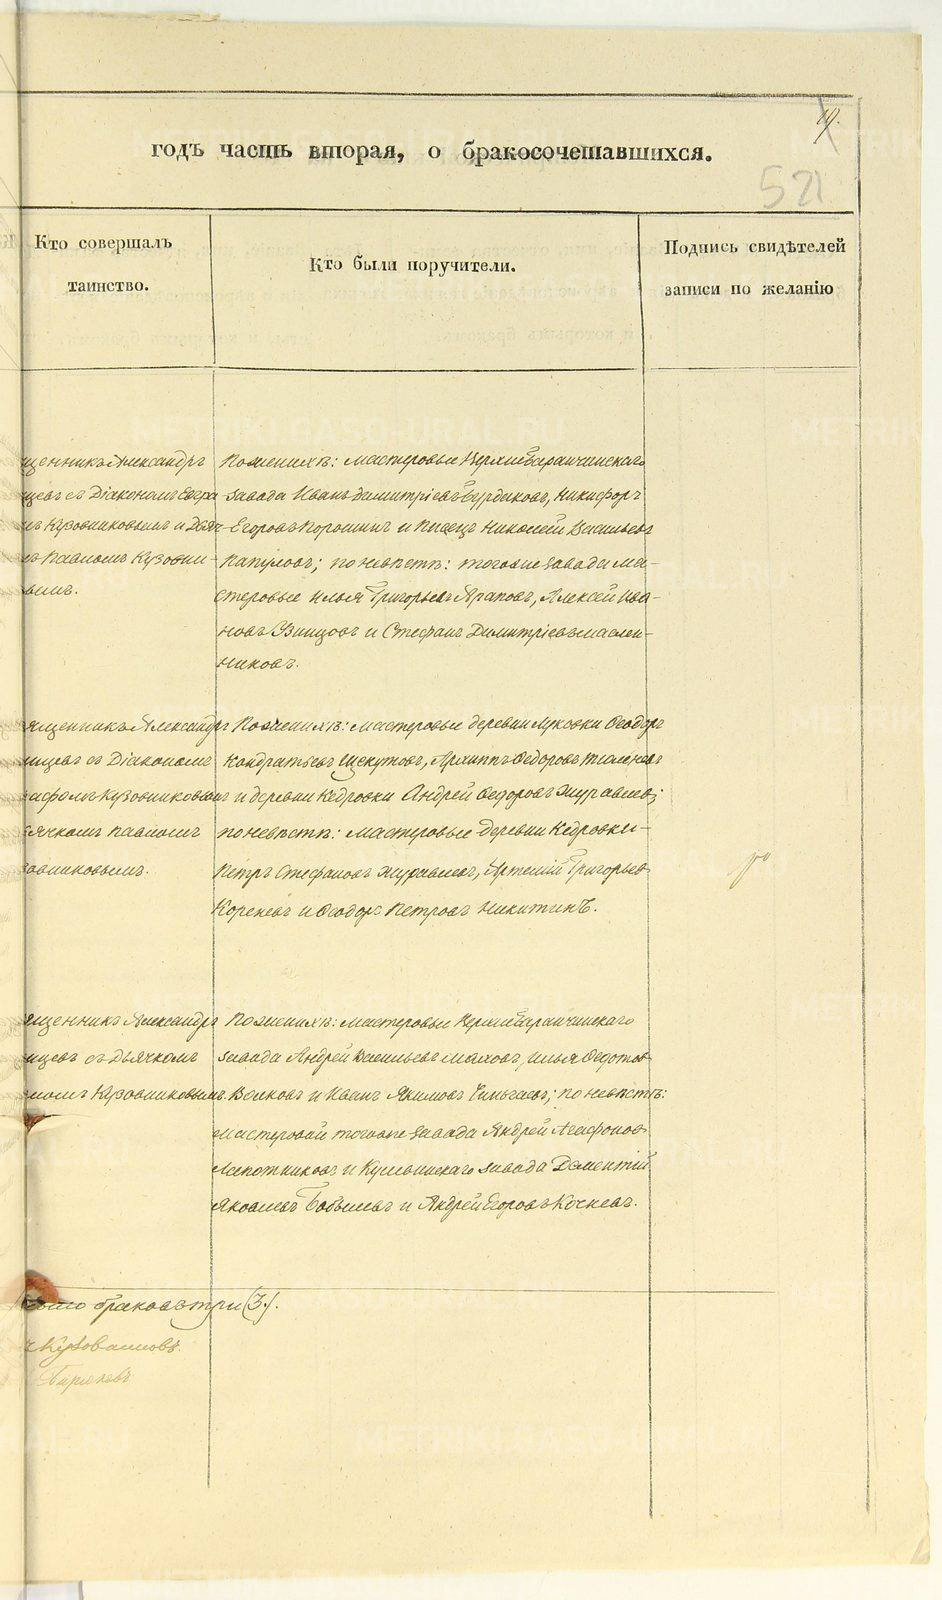 19.
годъ часть вторая, о бракосочетавшихся.
521
Кто совершалъ
таинство.
Кто были поручители.
Подпись свидѣтелей
записи по желанію
щенникъ Александръ
съ Діакономъ
Кузовниковымъ и Дьяч-
Павломъ Кузовни-
вымъ.
По женихѣ: мастеровые Верхнебаранчинскаго
завода Иванъ Димитріевъ Бурдаковъ, Никифоръ
Егоровъ Порошинъ и Писецъ Николай Васильевъ
по невѣстѣ: тогоже завода ма-
стеровые Илья Григорьевъ Араповъ, Алексѣй Ива-
новъ и Стефанъ Димитріевъ Маслен-
никовъ.
ященникъ Александръ
съ Діакономъ
Кузовниковымъ
ячкомъ Павломъ
зовниковымъ.
По женихѣ: мастеровые деревни Ѳеодоръ
Кондратьевъ Щекутовъ, Архиппъ Ѳедоровъ
и деревни Кедровки Андрей Ѳедоровъ Журавлевъ;
по невѣстѣ: мастеровые деревни Кедровки
Петръ Стефановъ Журавлевъ, Артемій Григорьевъ
Кореневъ и Ѳеодоръ Петровъ Никитинъ.
ященникъ Александръ
съ Дьячкомъ
Кузовниковымъ.
По женихѣ: мастеровые Верхнебаранчинскаго
завода Андрей Васильевъ Маховъ, Илья Ѳедотовъ
Волковъ и Иванъ Якимовъ по невѣстѣ:
мастеровой тогоже завода Андрей Агафоновъ
Лапотниковъ и Кушвинскаго завода Дементій
Яковлевъ Бабылевъ и Андрей Егоровъ Кочневъ.
браковъ три (3.).